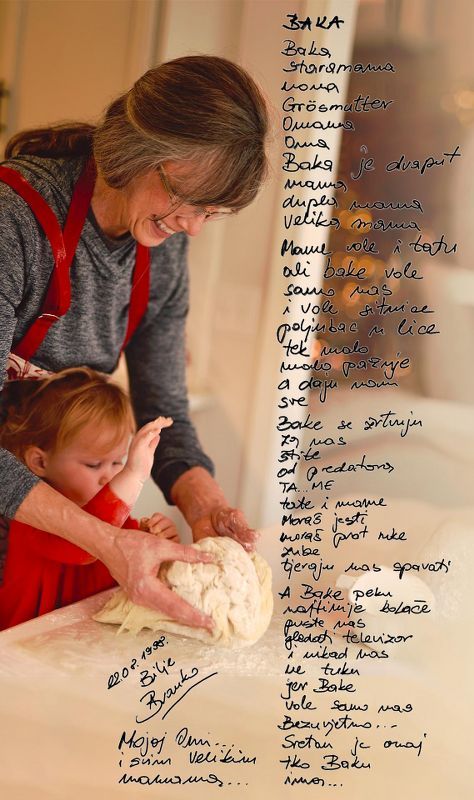 BAKA
Baka
staramama
nona
Grösmutter
Omama
Oma
Baka je dvaput
mama
dupla mama
velika mama
Mame vole i tatu
ali bake vole
samo nas
i vole sitnice
poljubac u lice
tek malo
malo pažnje
a daju nam
sve
Bake se žrtvuju
za nas
štite
od predatora
TA...ME
tate i mame
Moraš jesti
moraš prat ruke
zube
tjeraju nas spavati
A Bake peku
najfinije kolače
puste nas
gledati televizor
i nikad nas
ne tuku
jer Bake
vole samo nas
Bezuvjetno...
Sretan je onaj
tko Baku
ima...
22.08.1998
Bilje
Branko
Mojoj Omi...
i svim velikim
mamama...